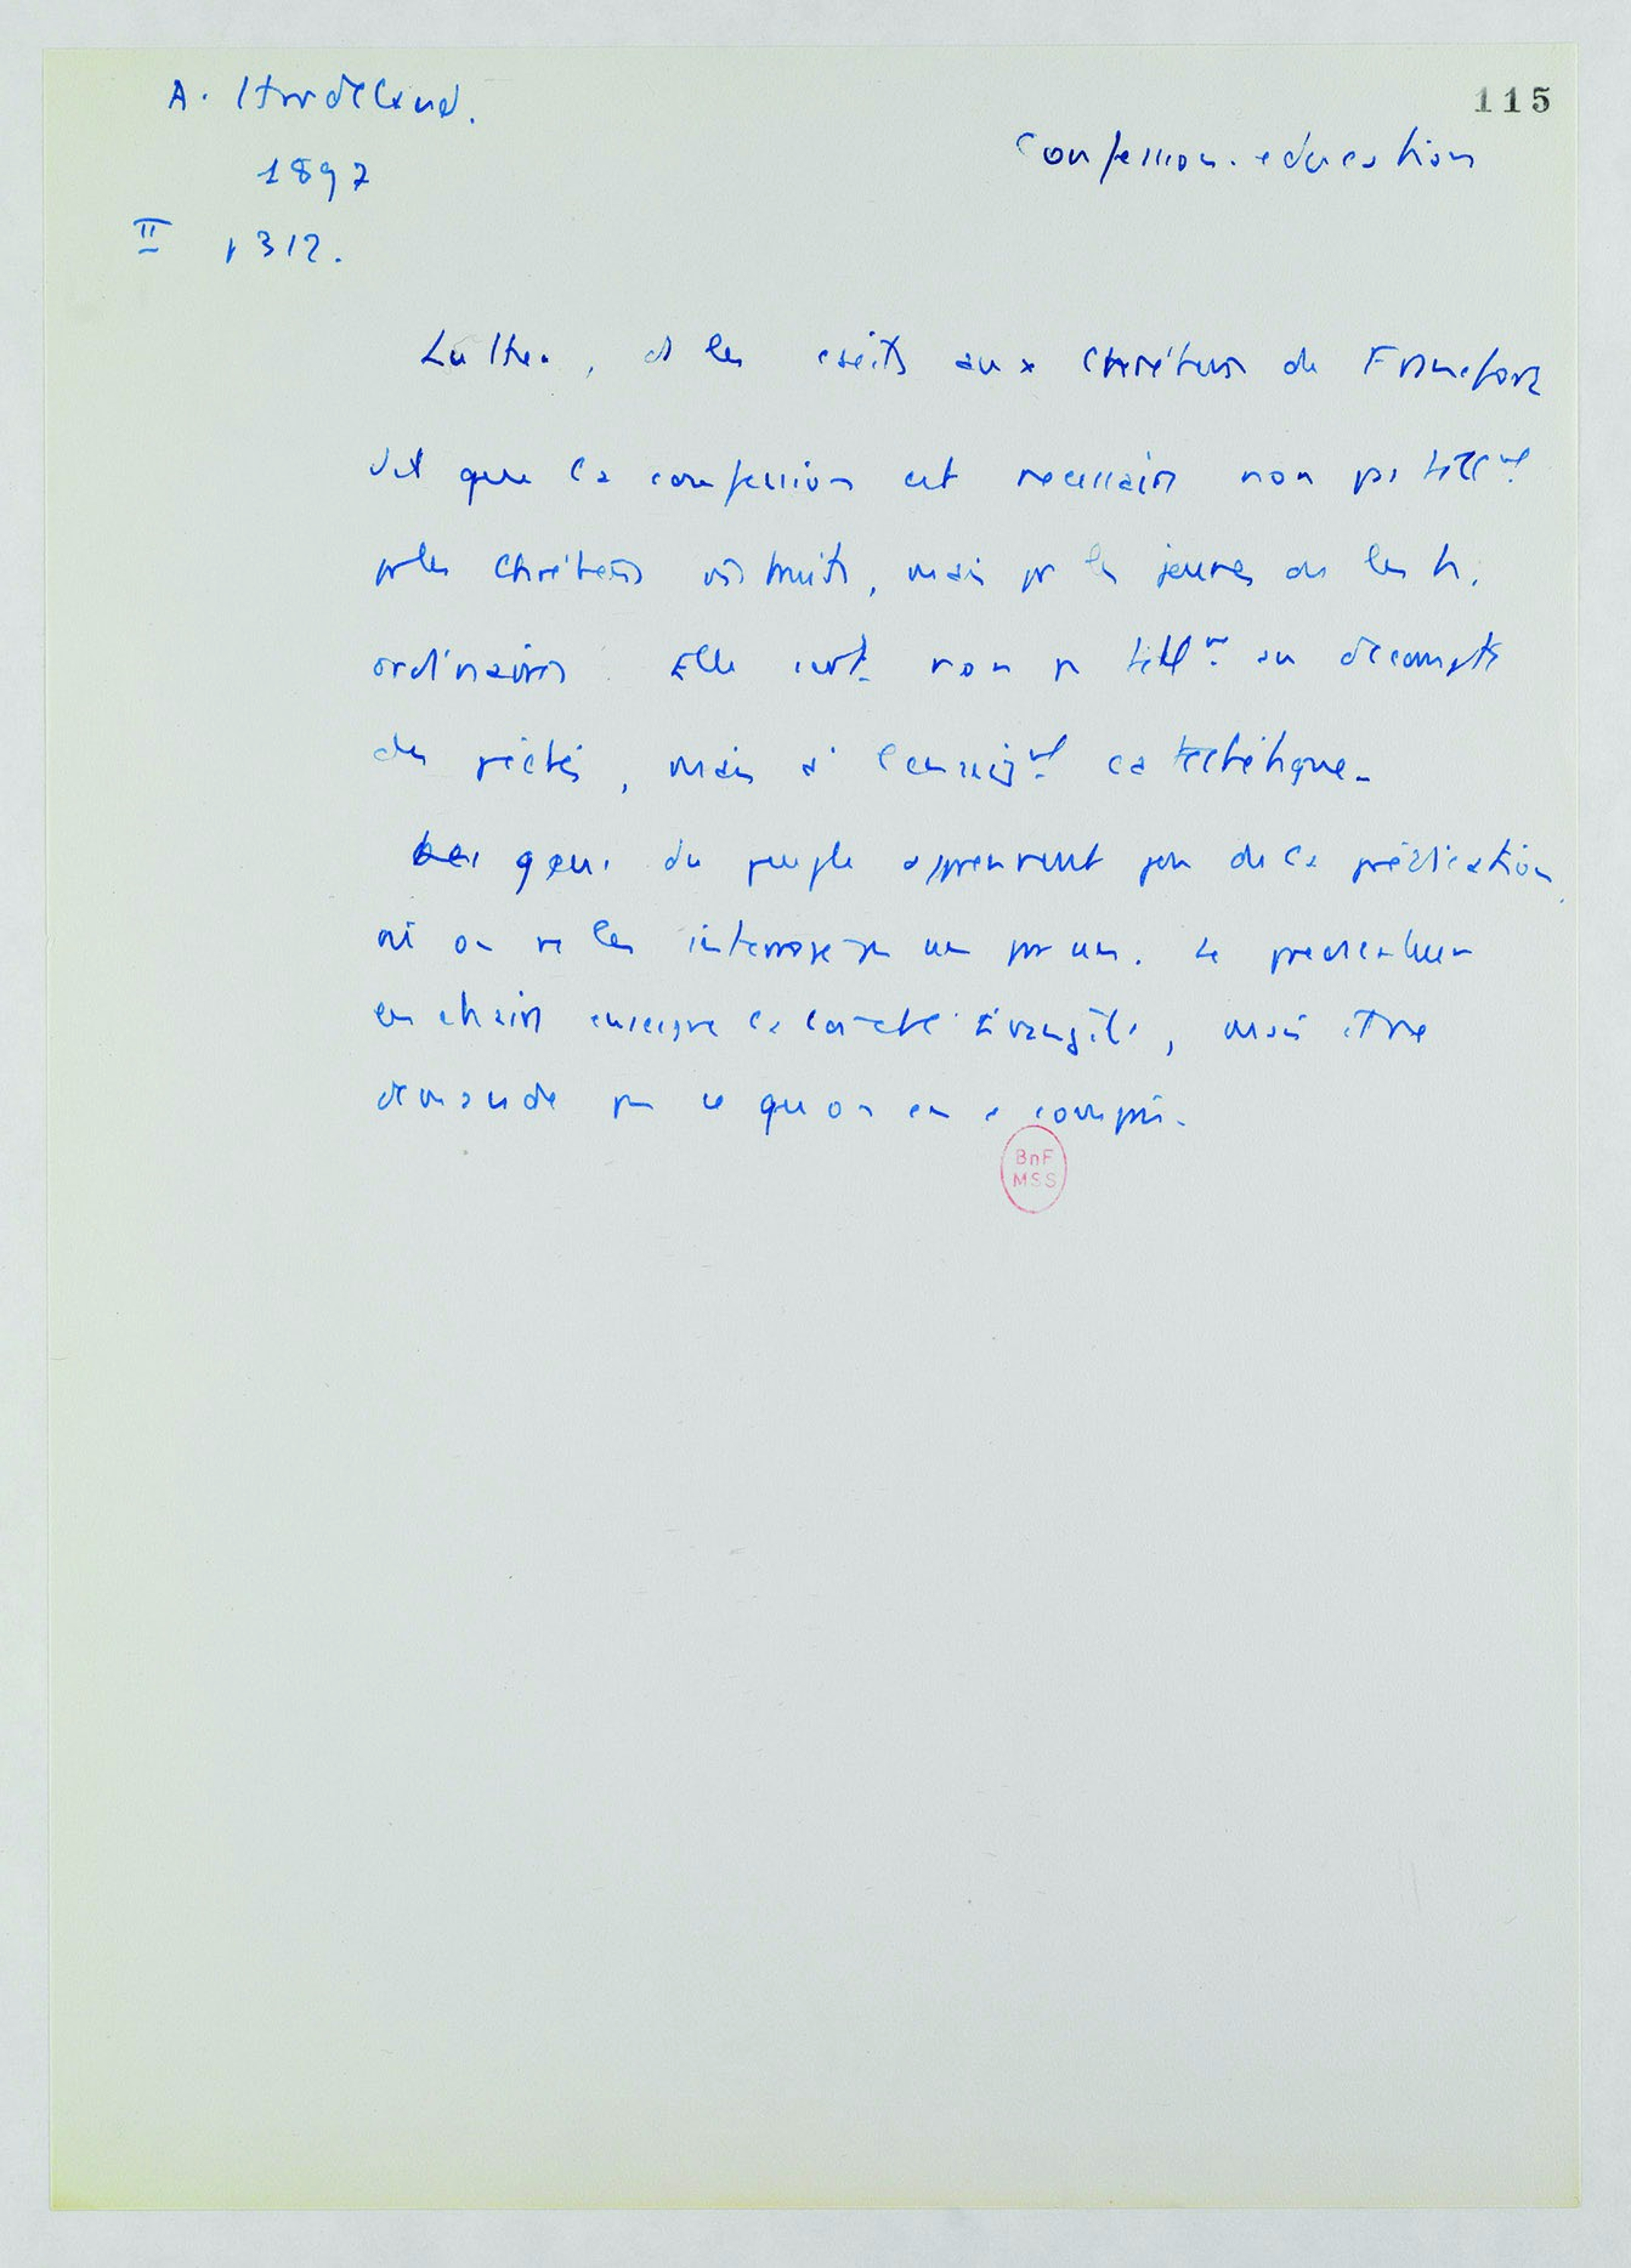 A. Hardeland.
115
Confession. education
1897
II p 312.
Luther, ds les écrits aux chrétiens de Francfort
dit que la confession est necessaire non ps tellmt
pr les chrétiens instruits, mais pr les jeunes ou les h.
ordinaires. Elle sert non ps tellmt au décompte
des péchés, mais à l'enseigmt catéchétique.
Les gens du peuple apprennent peu de la prédication
où on ne les interroge ps un par un. Le predicateur
en chaire enseigne la Evangile, mais il ne
demande ps ce qu'on en a compris.
BnF
MSS